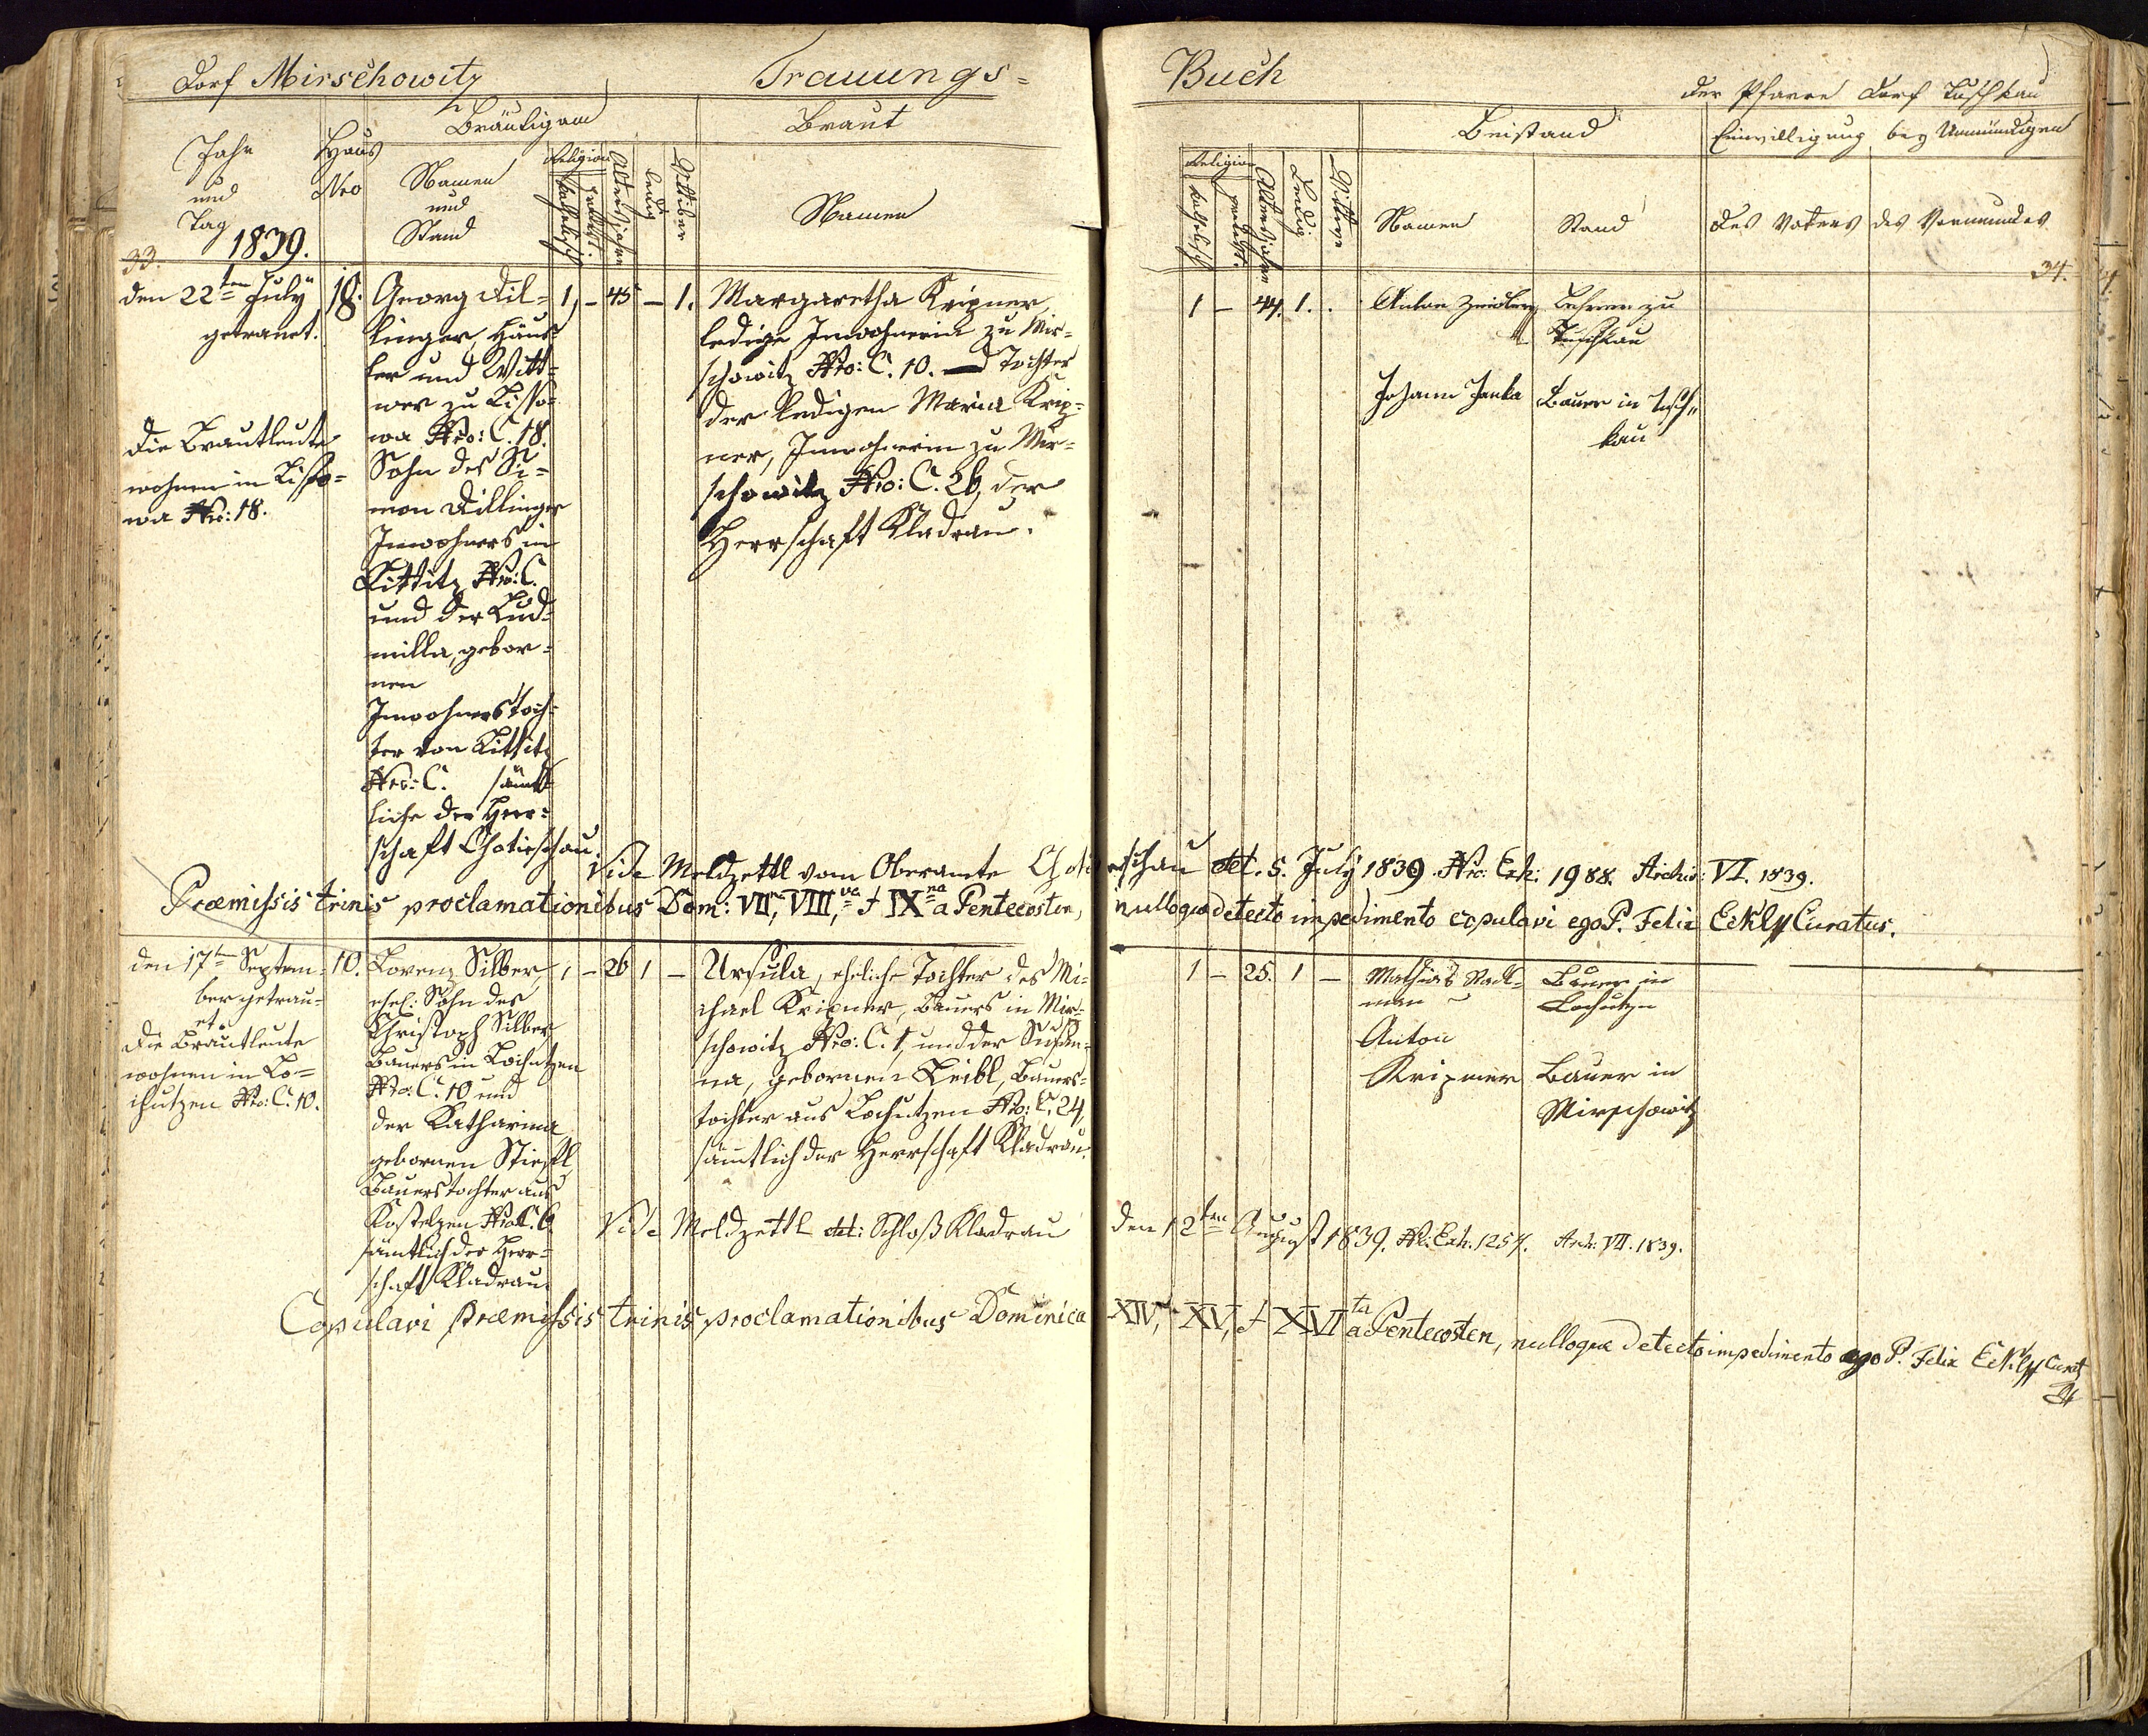 Dorf Mirschowitz
Trauungs=
Buch
der Pfarre Dorf Tuschkau
Jahr
und
Tag
1839.
Haus
Nro
Bräutigam
Namen
und
Stand
Religion
katholisch
protest.
Alters Jahre
ledig
Wittiber
Braut
Namen
Religion
katholisch
protest.
Alters Jahre
Ledig
Wittwe
Beistand
Namen
Stand
Einwilligung bey Unmündigen
des Vaters
des Vormundes
33.
34.
den 22ten July
getrauet.
Die Brautleute
wohnen in Lisso=
wa Nro: 18.
18.
Georg Dil=
linger, Häus=
ler und Witt=
wer zu Lisso=
wa Nro: C. 18.
Sohn des Si=
mon Dillinger
Inwohners in
Littitz Nro: C.
und der Lud=
milla, gebor=
nen
Inwohnerstoch=
ter von Littitz
Nro: C. sämt=
liche der Herr=
schaft Chotieschau.
1, - 45 - 1.
Margaretha Kripner
ledige Inwohnerin zu Mir=
schowitz Nro: C. 10. Tochter
der ledigen Maria Krip=
ner, Inwohnerin zu Mir=
schowitz Nro: C. 26, der
Herrschaft Kladrau.
1 - 44. 1. .
Anton Zeidler
Lehrer zu
Tuschkau
Johann Janka
Bauer in Tusch=
kau
Vide Meldzettl vom Oberamte Chotieschau dt. 5. July 1839. Nro: Exh: 1988. Archiv: VI. 1839.
Præmissis trinis proclamationibus Dom: VII, VIII,va & IXna a Pentecosten, nulloque detecto impedimento copulavi ego P. Felix Eckl Curatus.
den 17ten Septem=
ber getrau=
et.
Die Brautleute
wohnen in Lo=
chutzen Nro: C. 10.
10.
Lorenz Silber,
ehel: Sohn des
Christoph Silber
Bauers in Lochutzen
Nro: C. 10 und
der Katharina
gebornen Stiessl
Bauerstochter aus
Kostelzen Nro C. 6
sämtlich der Herr=
schaft Kladrau.
1 - 26 1 -
Ursula, eheliche Tochter des Mi=
chael Kripner, Bauers in Mir=
schowitz Nro: C. 1, und der Susan=
na, gebornen Leibl, Bauers=
tochter aus Lochutzen Nro: C. 24,
sämtlich der Herrschaft Kladrau.
1 - 25. 1 -
Mathias
Bauer in
Lochutzen
Anton
Kripner
Bauer in
Mirschowitz
Vide Meldzettl dt: Schloß Kladrau den 12ten August 1839. N: Exh. 1257. Arch: VII. 1839.
Copulavi præmissis trinis proclamationibus Dominica XIV, XV, & XVIta a Pentecosten, nulloque detecto impedimento ego P. Felix Eckl Curat